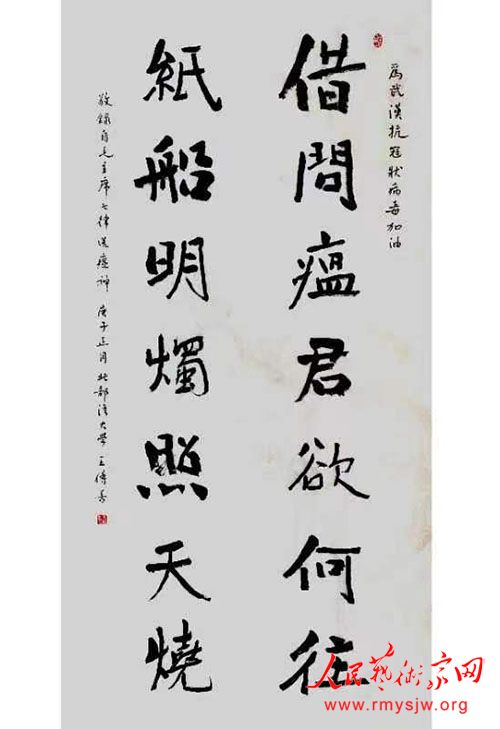 為武漢抗冠狀病毒加油
借問瘟君欲何往
紙船明燭照天燒
敬錄自毛主席七律送瘟神 庚子正月北部湾大學王傳善
人民藝術家网
www.rmysjw.org